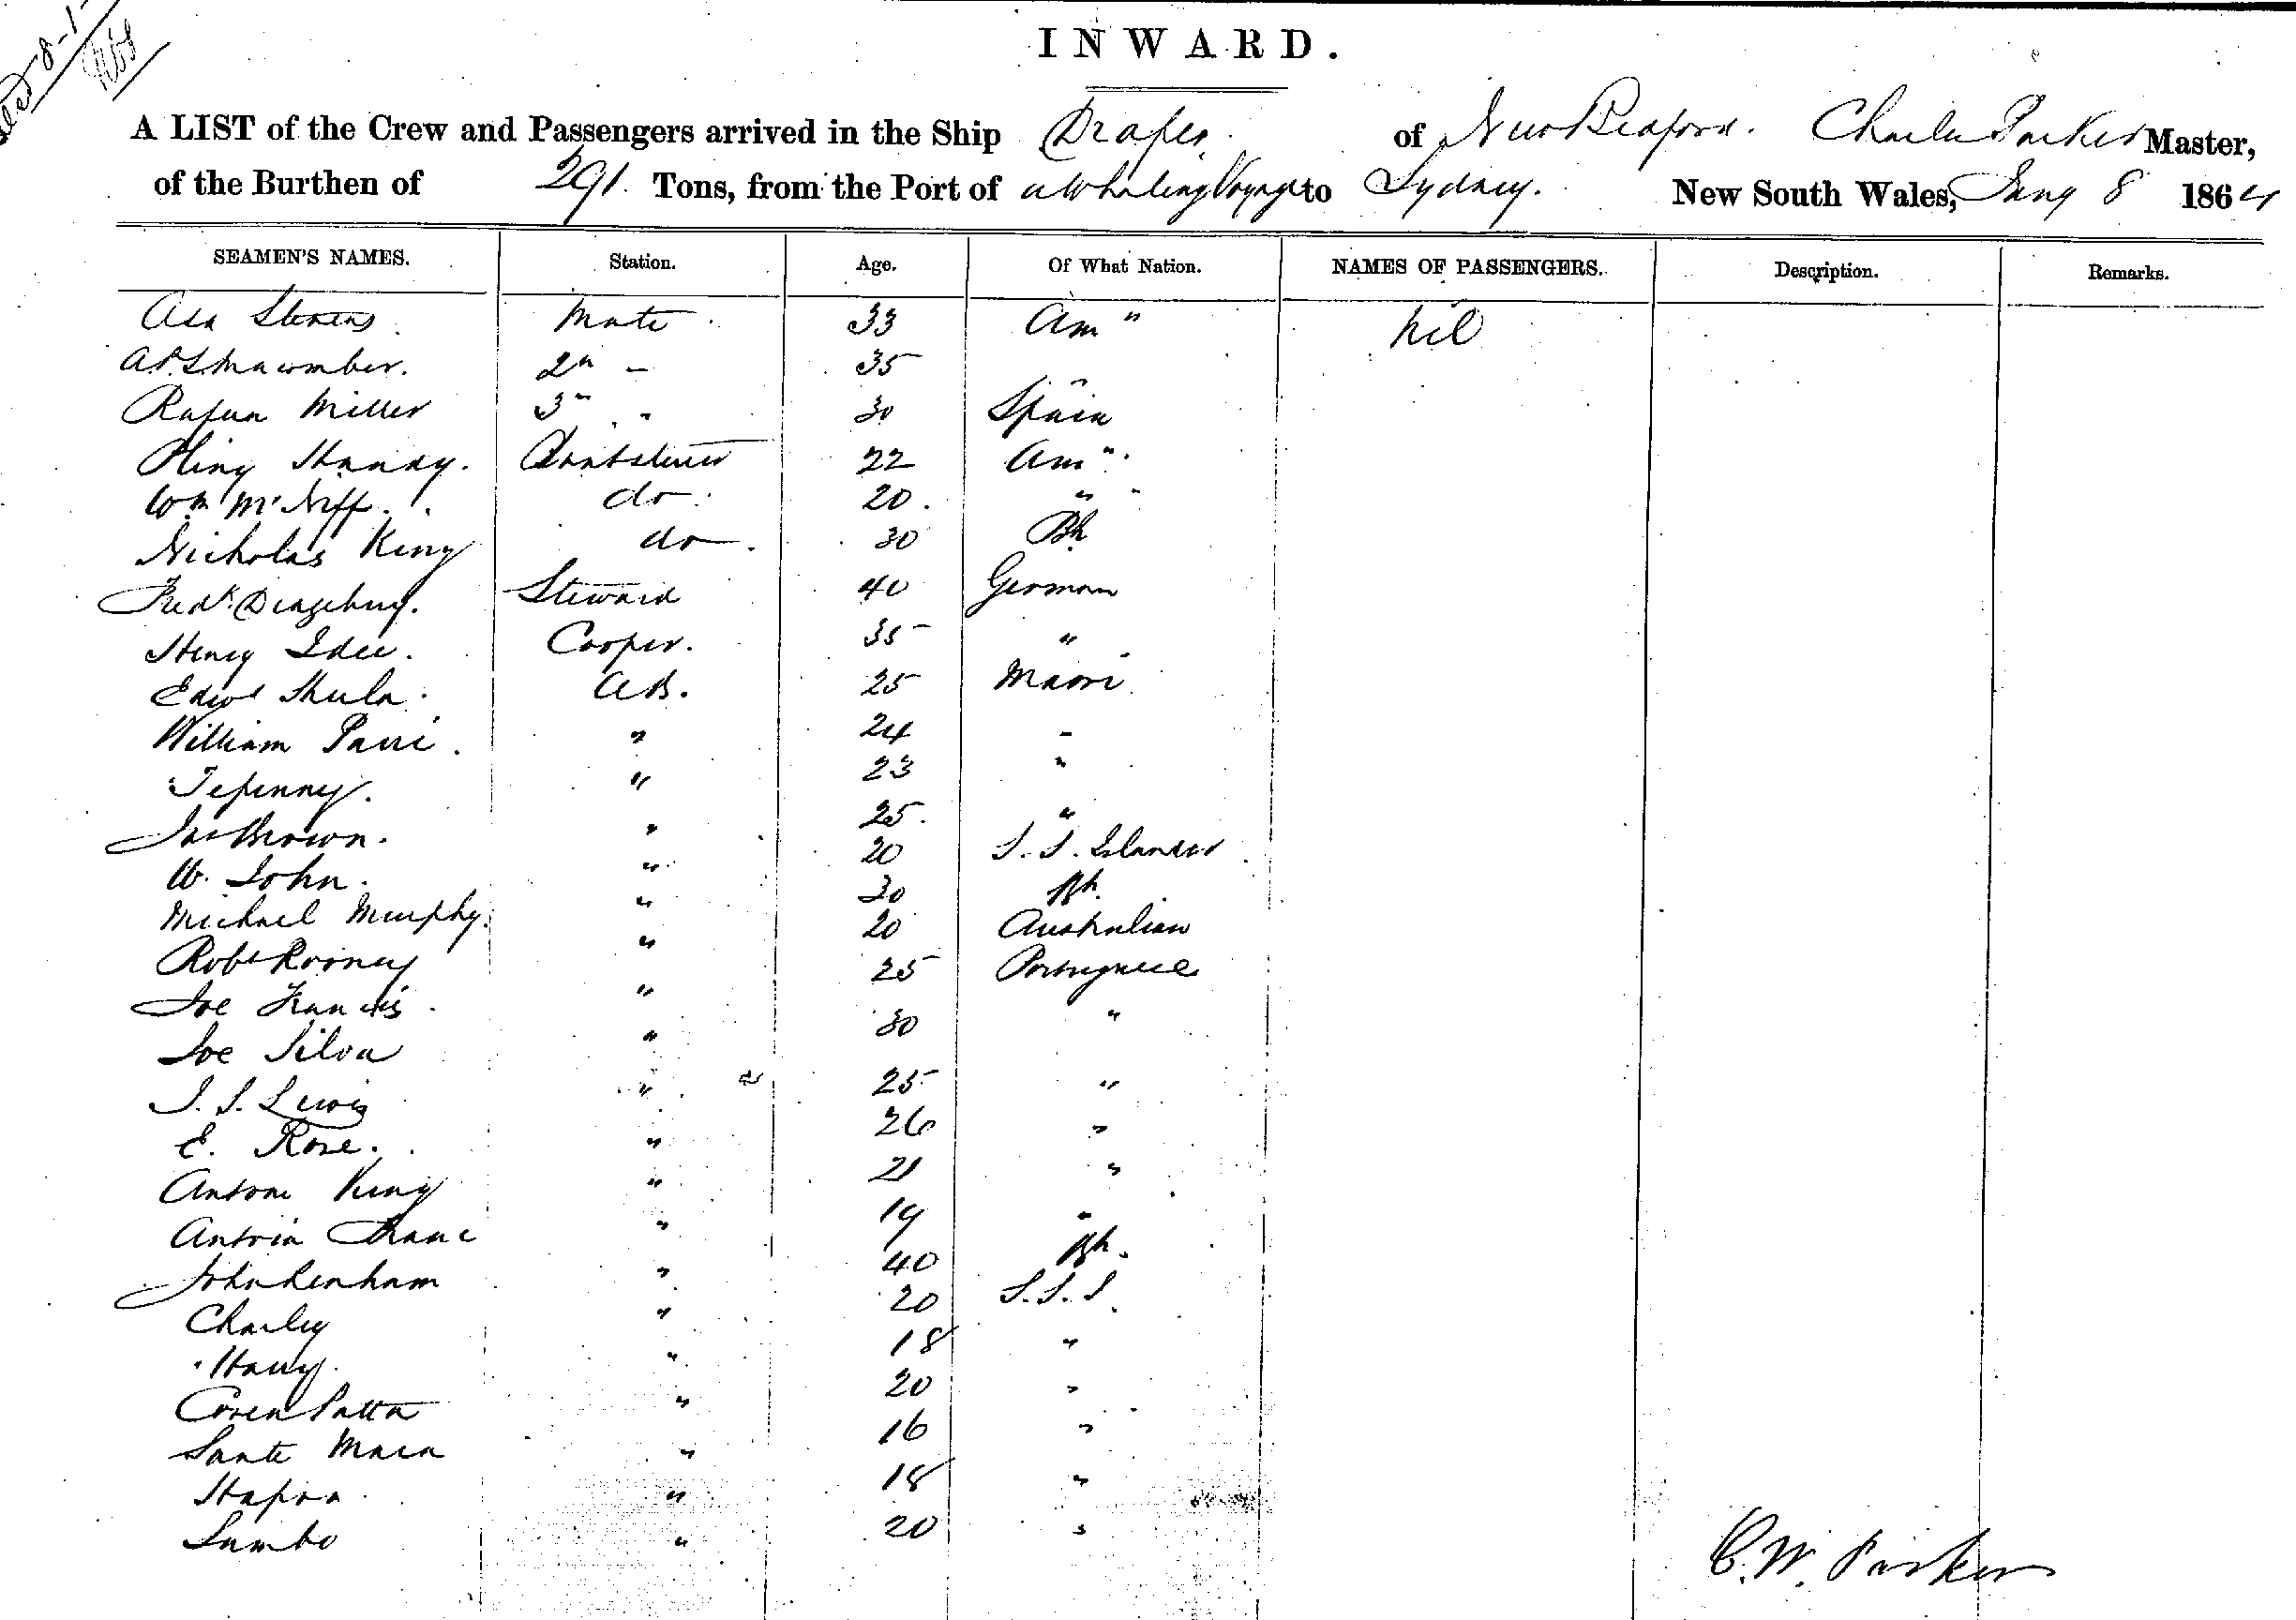 INWARD.
A LIST of the Crew and Passengers arrived in the Ship Draper of New Bedford. Charles Parker Master,
of the Burthen of 291 Tons, from the Port of a Whaling Voyage to Sydney. New South Wales, Jany 8 1864
SEAMEN'S NAMES. Station. Age. Of What Nation. NAMES OF PASSENGERS. Description. Remarks.
Asa Stevens Mate 33 Am " nil
Macomber. 2n - 35 "
Miller 3 " 30 Spain
Pliny Handy. Boatsteerer 22 Am "
Wm McNiff. do 20 " "
Nicholas King do 30 Bh
Fredk. Steward 40 German
Henry Idee. Cooper. 35 "
Edwd AB. 25 Maori
William " 24 "
Tepenny. " 23 "
Jas Brown. " 25 "
W. John. " 20 S. S. Islander
Michael Murphy. " 30 Bh.
Robt Rooney " 20 Australian
Joe Francis " 25 Portuguese
Joe Silva " 30 "
J. S. Lewis " 25 "
E. Rose. " 26 "
Antone King " 21 "
Antoin " 19 "
John Denham " 40 Bh.
Charley " 20 S. S. I.
Harry. " 18 "
" 20 "
" 16 "
" 18 "
Sambo " 20 "
C. W. Parker